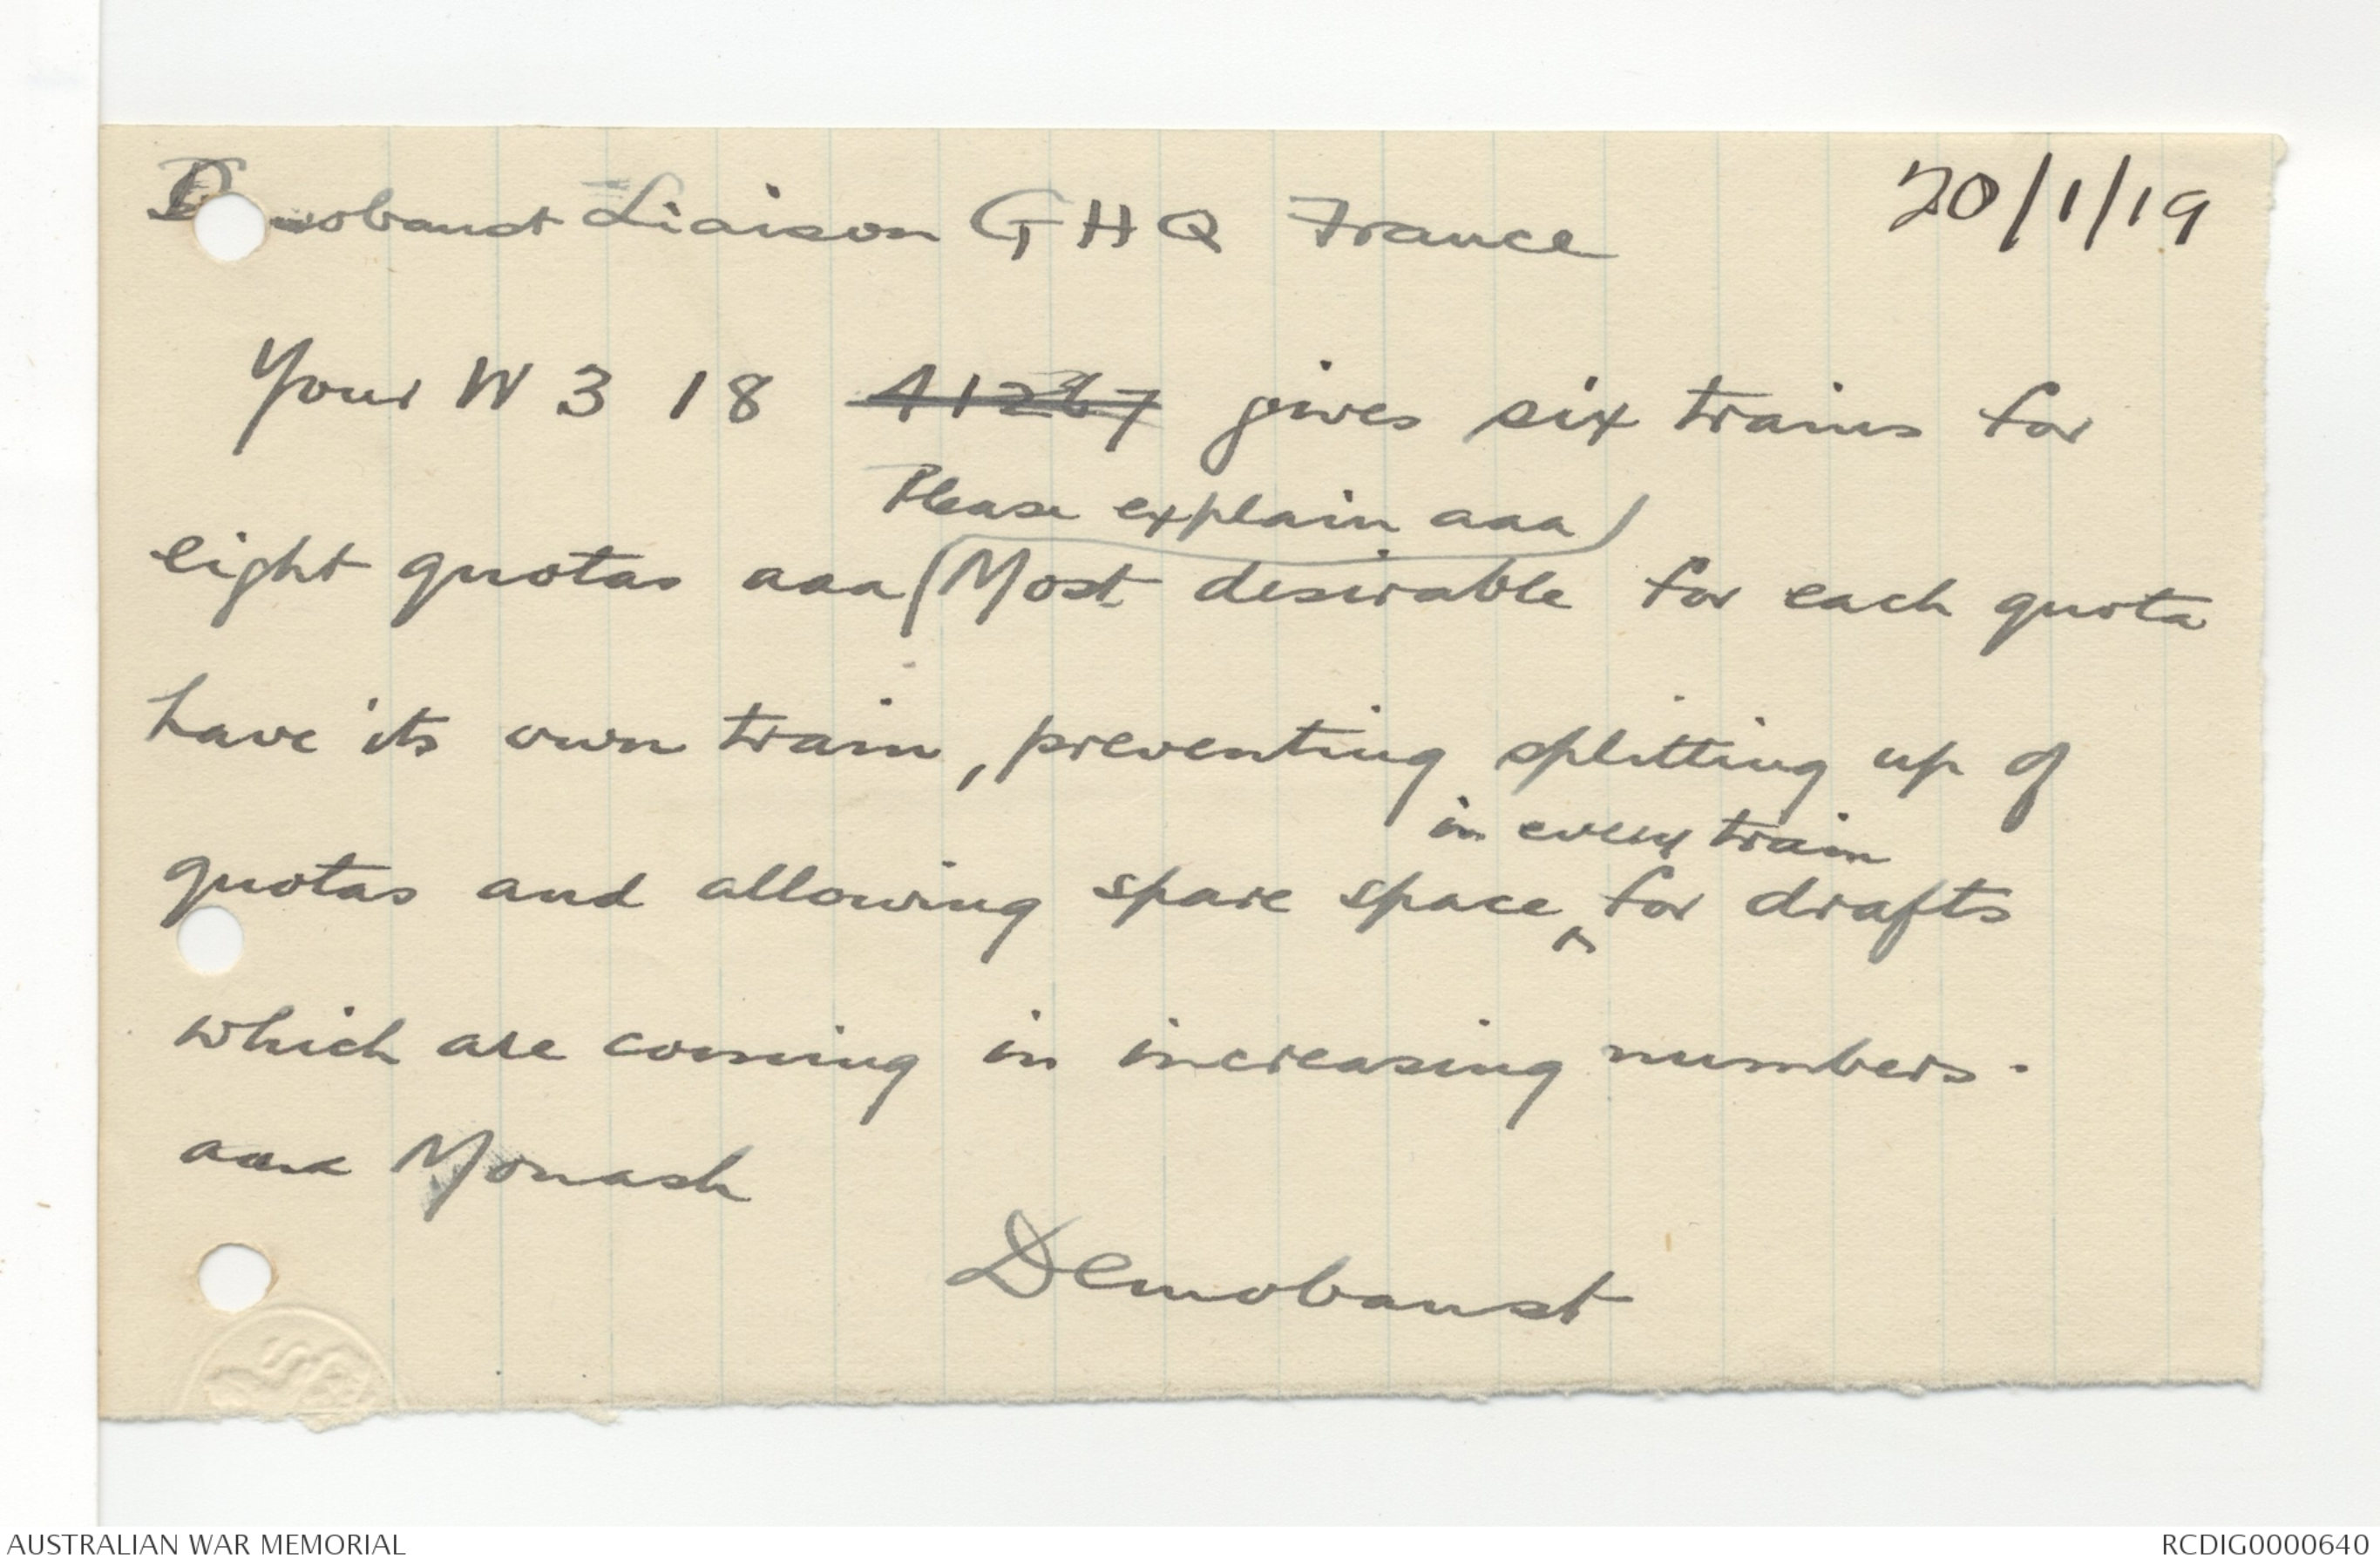 Demobaust Liaison GHQ France 20/1/19
Your W 318 41267 gives six trains for
Please explain aaa
eight quotas aaa (Most desirable for each quota
have its own train, preventing splitting up of
in every train
quotas and allowing spare space for drafts
which are coming in increasing numbers.
aaa Monash
Demobaust
AUSTRALIAN WAR MEMORIAL
RCDIG0000640